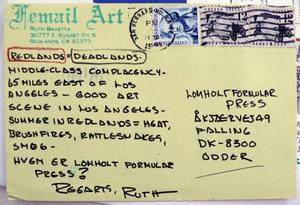 Femail Art
RUTH BAVETTA
30777 E SUNSET DR. S
REDLANDS, CA 92373
REDLANDS = DEADLANDS -
MIDDLE-CLASS COMPLACENCY -
65 MILES EAST OF LOS
ANGELES - GOOD ART
SCENE IN LOS ANGELES -
SUMMER IN REDLANDS = HEAT,
BRUSHFIRES, RATTLESNAKES,
SMOG -
HVEM ER LOMHOLT FORMULAR
PRESS?
REGARDS, RUTH
LOMHOLT FORMULAR
PRESS
FALLING
DK-8300
ODDER